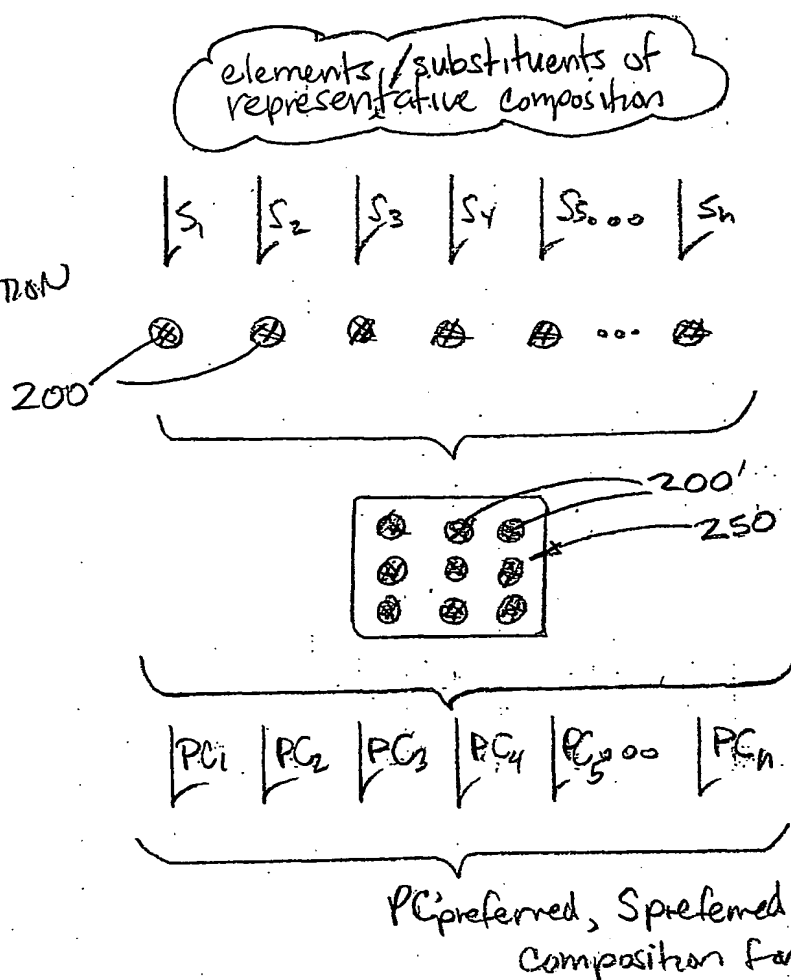 elements/substituents of
representative composition
S1 S2 S3 S4 S5... Sn
...
200
200'
250
PC1 PC2 PC3 PC4 PC5... PCn
PC'preferred, Spreferred
Composition for